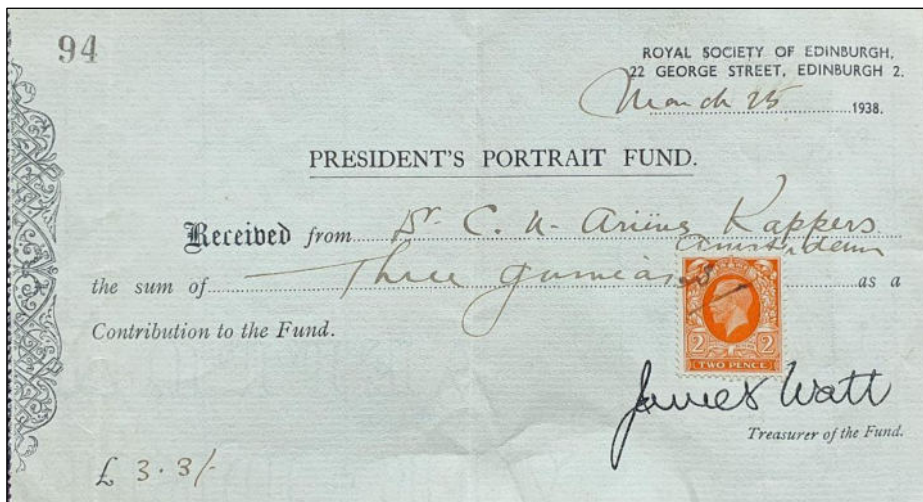 94
ROYAL SOCIETY OF EDINBURGH,
22 GEORGE STREET, EDINBURGH 2.
March 25 1938.
PRESIDENT'S PORTRAIT FUND.
Received from Dr C. U. Ariëns Kappers
Amsterdam
the sum of Three guineas as a
Contribution to the Fund.
2 2
TWO PENCE
James Watt
Treasurer of the Fund.
£ 3.3/-